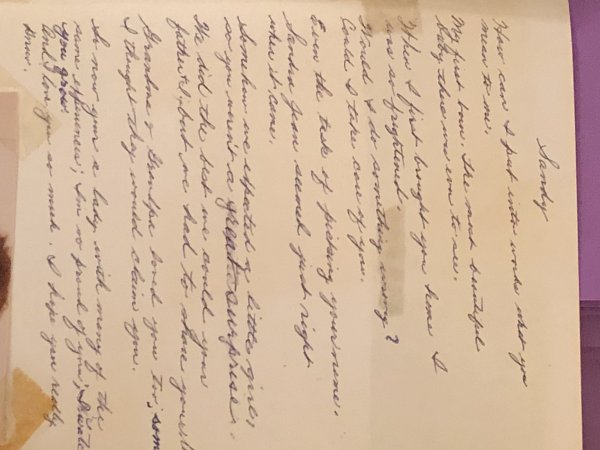 Sandy
How can I put into words what you
mean to me.
My first born. The most beautiful
baby there was ever to see.
When I first brought you home I
was so frightened.
Would I do something wrong?
Could I take care of you.
Even the task of picking your name.
Sandra Jean just right
when it came.
Somehow we expected a little girl,
so you weren't a great surprise.
We did the best we could your
father & I, but we had to share
Grandma & Grandpa loved you too; som
I thought they would claim you.
So now your a lady with many of the
same experiences; I'm so proud of you;
you grow.
And I love you so much. I hope you really
know.